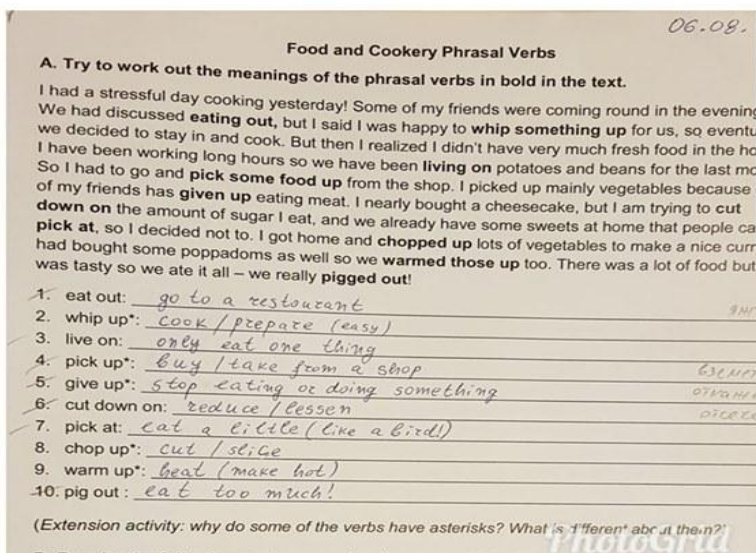 06.08.
Food and Cookery Phrasal Verbs
A. Try to work out the meanings of the phrasal verbs in bold in the text.
I had a stressful day cooking yesterday! Some of my friends were coming round in the evening
We had discussed eating out, but I said I was happy to whip something up for us, so eventu
we decided to stay in and cook. But then I realized I didn't have very much fresh food in the ho
I have been working long hours so we have been living on potatoes and beans for the last mo
So I had to go and pick some food up from the shop. I picked up mainly vegetables because
of my friends has given up eating meat. I nearly bought a cheesecake, but I am trying to cut
down on the amount of sugar I eat, and we already have some sweets at home that people ca
pick at, so I decided not to. I got home and chopped up lots of vegetables to make a nice curr
had bought some poppadoms as well so we warmed those up too. There was a lot of food but
was tasty so we ate it all – we really pigged out!
1. eat out: go to a restourant
2. whip up*: cook / prepare (easy)
3. live on: only eat one thing
4. pick up*: buy / take from a shop
5. give up*: stop eating or doing something
6. cut down on: reduce / lessen
7. pick at: eat a little (like a bird!)
8. chop up*: cut / slice
9. warm up*: heat (make hot)
10. pig out : eat too much!
(Extension activity: why do some of the verbs have asterisks? What is different about them?)
PhotoGrid